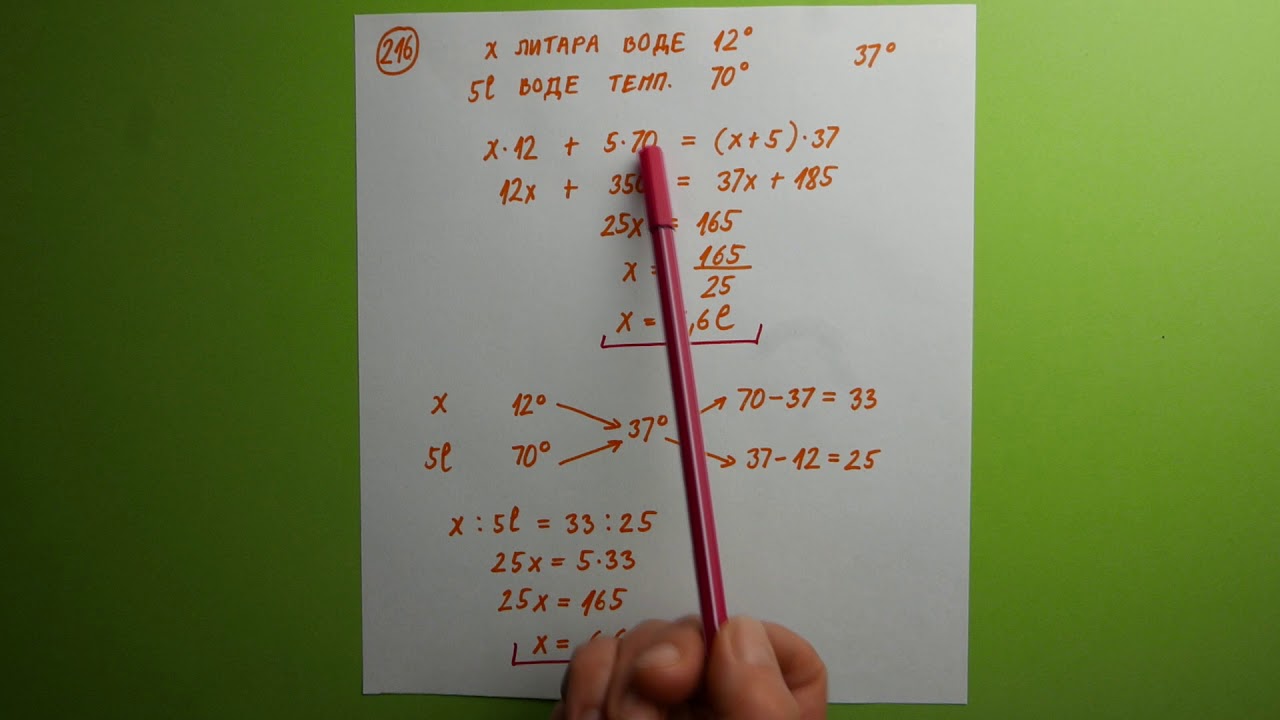 216
x ЛИТАРА ВОДЕ 12° 37°
5l ВОДЕ ТЕМП. 70°
x·12 + 5·70 = (x+5)·37
12x + 350 = 37x + 185
25x = 165
x = 165/25
x = ,6l
x 12° 37° 70-37 = 33
5l 70° 37-12 = 25
x : 5l = 33 : 25
25x = 5·33
25x = 165
x =